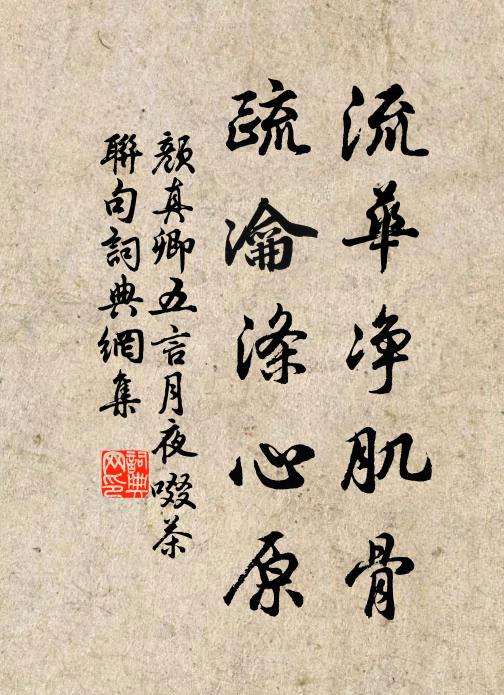 流華净肌骨
疏瀹滌心原
顏真卿五言月夜啜茶
聯句詞典網集
詞典
网印